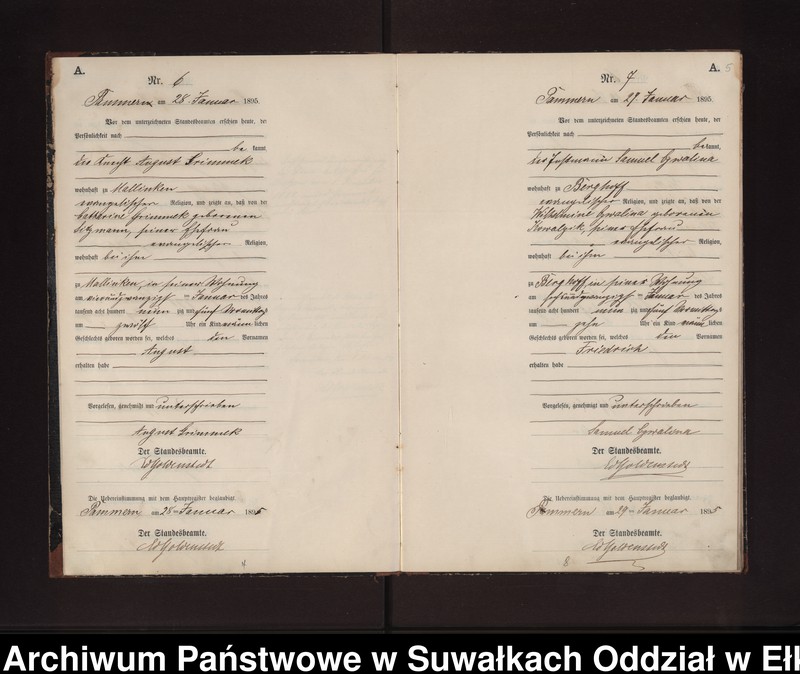 A.
Nr. 6
Pammern am 28 Januar 1895.
Vor dem unterzeichneten Standesbeamten erschien heute, der
Persönlichkeit nach
be kannt,
der Knecht August Grimmek
wohnhaft zu Mallinken
evangelischer Religion, und zeigte an, daß von der
Grimmek geborenen
seiner Ehefrau
evangelischer Religion,
wohnhaft bei ihm
zu Mallinken, in seiner Wohnung
am vierundzwanzigsten Januar des Jahres
tausend acht hundert neun zig und fünf Vormittags
um zwölf Uhr ein Kind männlichen
Geschlechts geboren worden sei, welches den Vornamen
August
erhalten habe
Vorgelesen, genehmigt und unterschrieben
August Grimmek
Der Standesbeamte.
Goldenstedt
Die Uebereinstimmung mit dem Hauptregister beglaubigt.
Pammern am 28ten Januar 1895
Der Standesbeamte.
Goldenstedt
A. 5
Nr. 7
Pammern am 29 Januar 1895.
Vor dem unterzeichneten Standesbeamten erschien heute, der
Persönlichkeit nach
be kannt,
der Samuel Cywalina
wohnhaft zu Berghoff
evangelischer Religion, und zeigte an, daß von der
Wilhelmine Cywalina geborenen
Kowalzik, seiner Ehefrau
evangelischer Religion,
wohnhaft bei ihm
zu Berghoff in seiner Wohnung
am sechsundzwanzigsten Januar des Jahres
tausend acht hundert neun zig und fünf Vormittags
um zehn Uhr ein Kind männlichen
Geschlechts geboren worden sei, welches den Vornamen
Friedrich
erhalten habe
Vorgelesen, genehmigt und unterschrieben
Samuel Cywalina
Der Standesbeamte.
Goldenstedt
Die Uebereinstimmung mit dem Hauptregister beglaubigt.
Pammern am 29ten Januar 1895
Der Standesbeamte.
Goldenstedt
8
Archiwum Państwowe w Suwałkach Oddział w Ełk